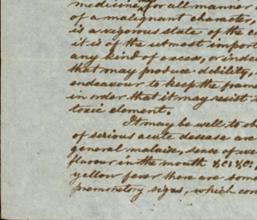 medicine, for all manner
of a malignant character,
is a vigorous state of the
it is of the utmost import
any kind of excess, or indeed
that may produce debility,
endeavour to keep the frame
in order that it may resist
toxic element.
It may be well to ob
of serious acute disease are
general malaise, sense of
flavour in the mouth &c: &c:
yellow fever there are some
premonitory signs, which con